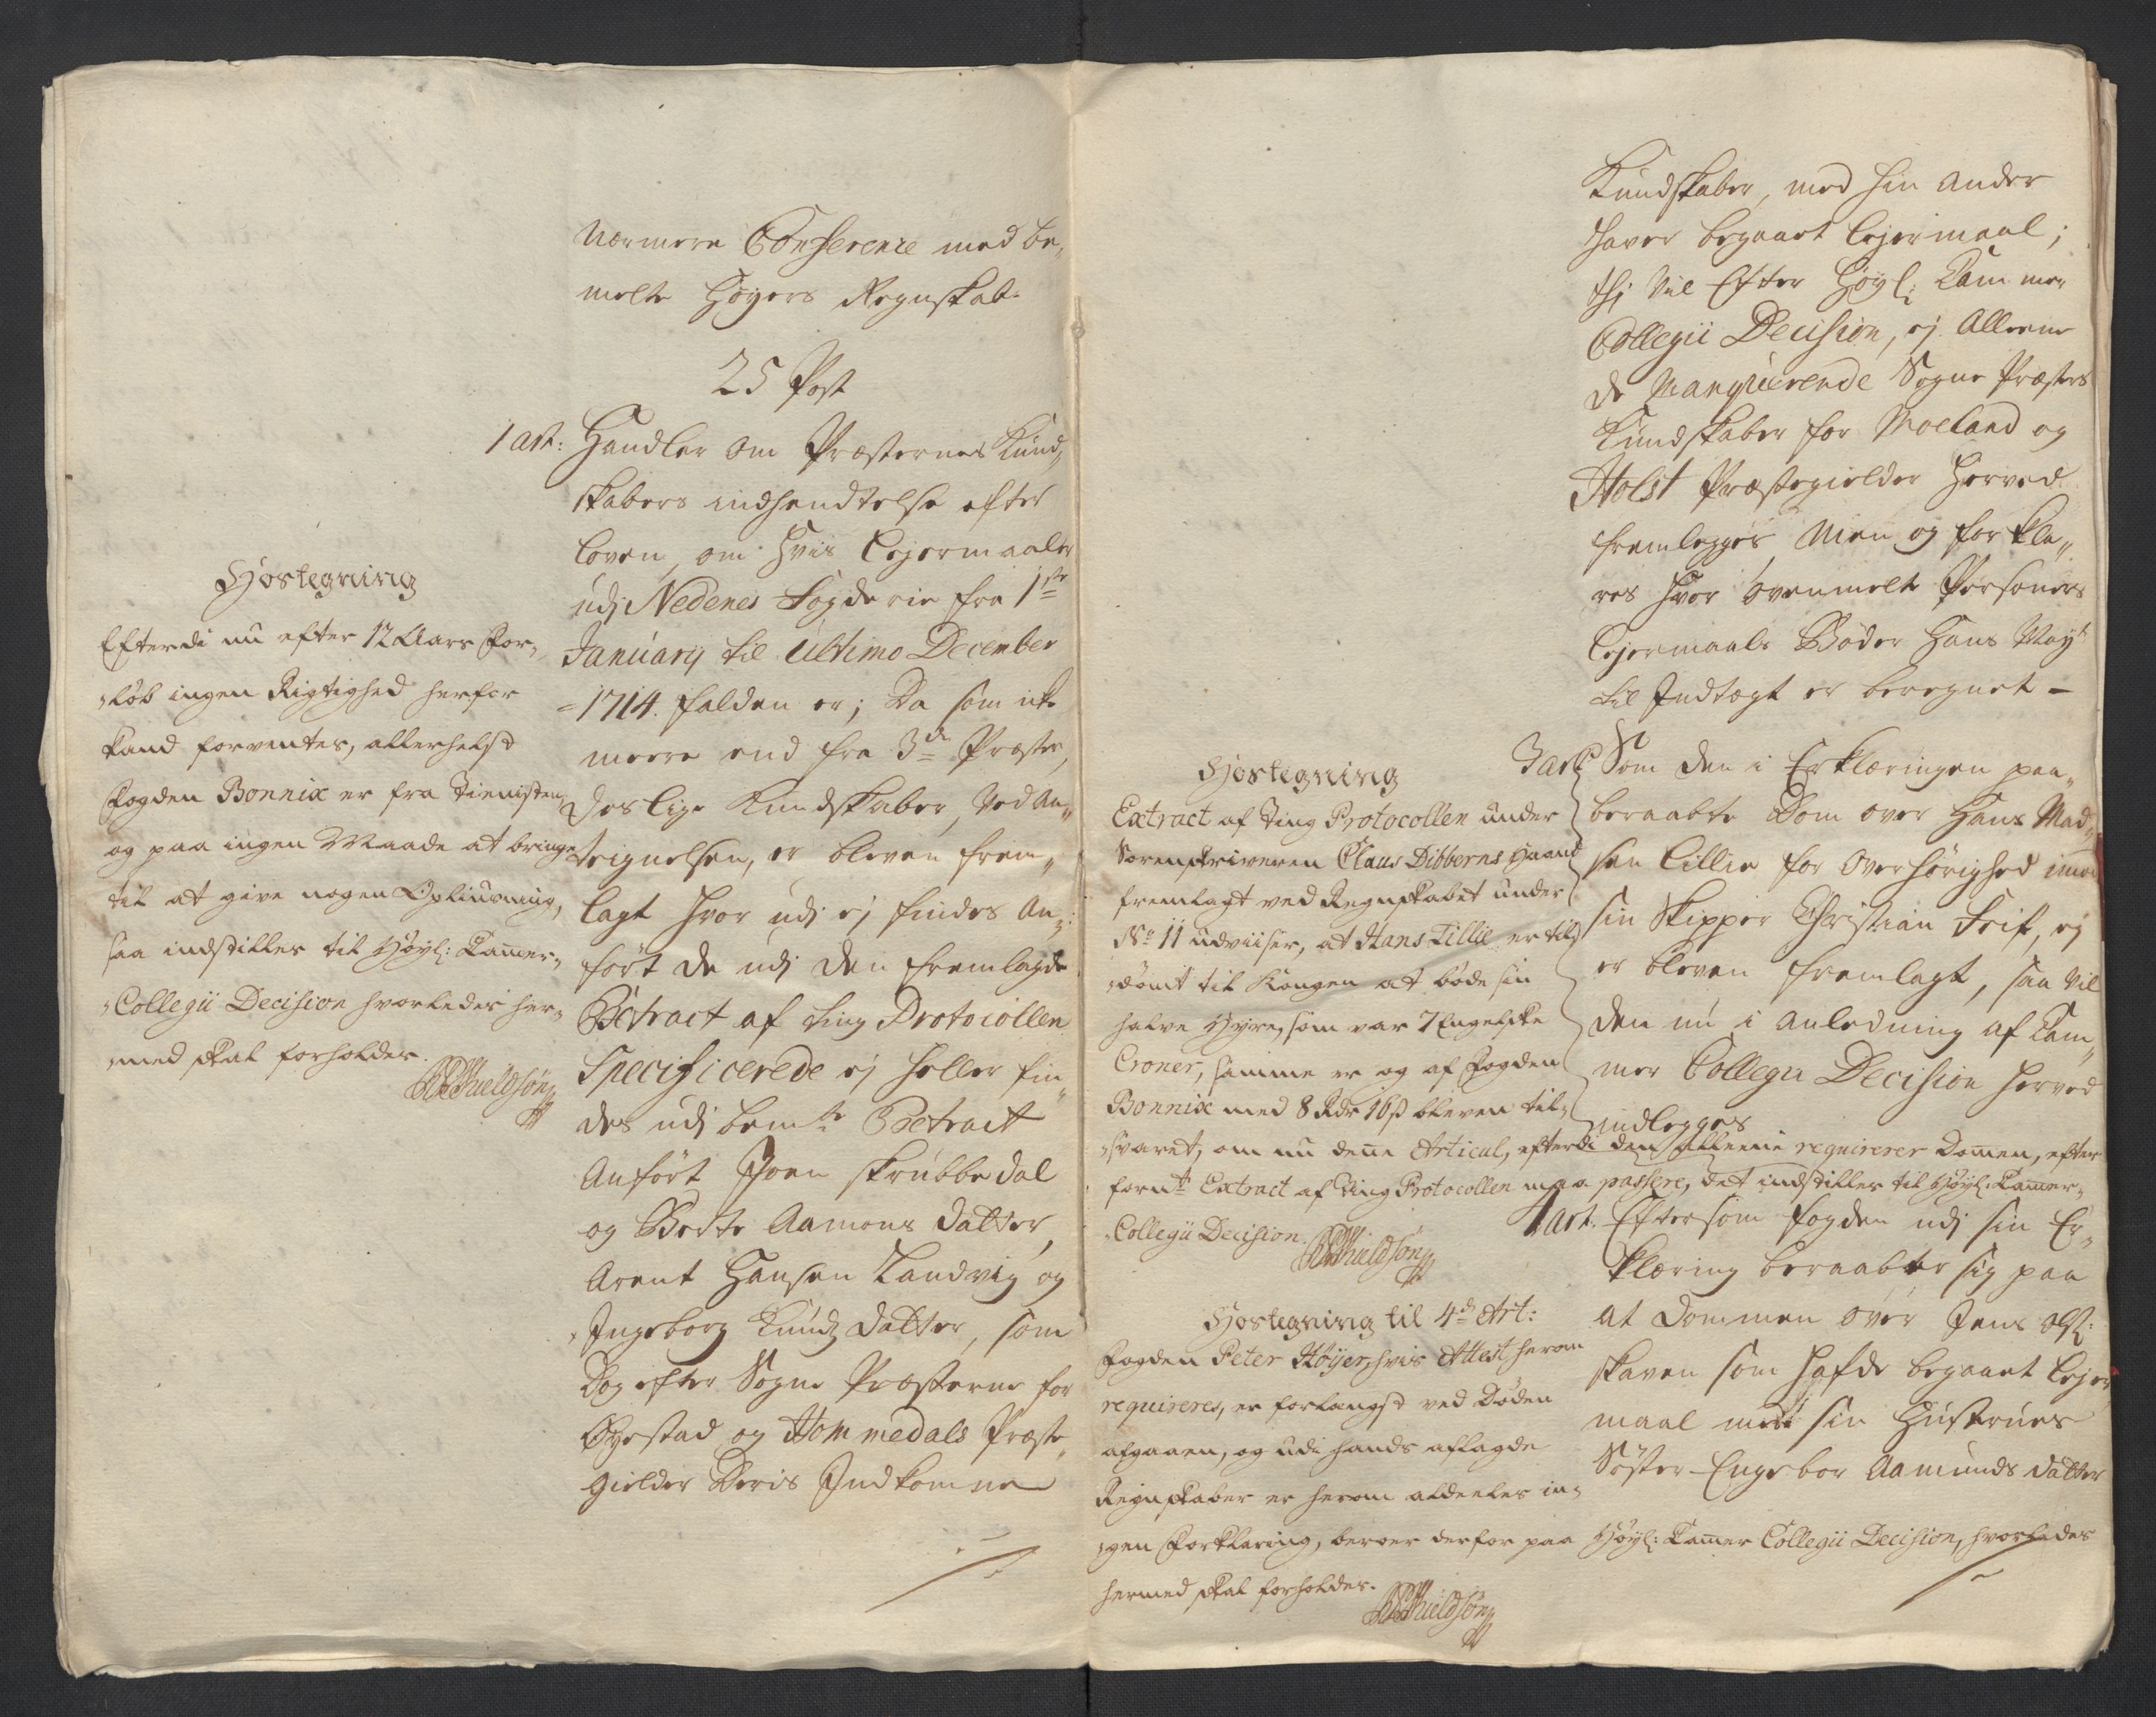 nærmere Conference med be,,
melte Høyers Regnskab.
25 Post
1 art: Handler om Præsternes Kund,,
skabers indsendelse efter
loven, om hvis Lejermaaler
udj Nedenes Fogderie fra 1ste
January til Ultimo December
1714. falden er; Da som icke
meere end fra 3de Præster,
deslige Kundskaber, ved An,,
tegnelsen, er bleven frem,,
lagt hvor udj ej findes An,,
ført de udj den fremlagde
Extract af Ting Protocollen
Specificerede ej heller fin,,
des udj bemte Extract
Anført Joen Skrubbedal
og Berte Aamons datter,
Arent Hansen Landvig og
Ingeborg Knudz datter, som
Dog efter Sogne Præsterne for
Øyestad og Hommedals Præste,,
gielder Deris Indkomne
Hostegning
Efterdi nu efter 12 Aars For,,
løb ingen Rigtighed herfor
kand forventes, allerhelst
Fogden Bonnix er fra Tienisten
og paa ingen Maade at bringe
til at give nogen Opliusning,
saa indstilles til Høyl: Camer,,
Collegii Decision hvorledes her,,
med skal forholdes.
Kundskaber, med hin anden
haver begaaet lejermaal;
thj vil Efter Høyl: Cammer
Collegii Decision, ej Alleene
de Manquerende Sogne Præsters
Kundskaber for Moeland og
Holst Præstegielder herved
fremlegges Men og forkla,,
res hvor ovenmelte Persohners
Lejermaals Bøder Hans Mayt
til Indtægt er beregnet —
3 art: Som den i Erklæringen paa,,
beraabte Dom over Hans Mad,,
sen Lillie for Overhørighed imod
sin Skipper Christian Feif, ej
er bleven fremlagt, saa vil
den nu i anledning af Cam,,
mer Collegii Decision herved
indlegges
Hostegning
Extract af Ting Protocollen under
Sorenskriveren Claus Dibberns Haand
fremlagt ved Regnskabet under
No 11 udviiser, at Hans Lillie er til,,
dømt til Kongen at bøde sin
halve Hyre, som var 7 Engelske
Croner, samme er og af Fogden
Bonnix med 8 Rdr 16 s bleven til,,
svaret, om nu dene Articul, efterdi den alleene requirerer Domen, efter
fornte Extract af Ting Protocollen maa passere, det indstilles til Høyl: Camer,,
Collegii Decision.
4 art. Eftersom fogden udj sin Er,,
klæring beraaber sig paa
at Dommen over Jens
skaven som hafde begaaet Lejer,,
maal med sin Hustrues
Søster Engebor Aamunds datter
Hostegning til 4de Art:
Fogden Peter Høyer, hvis Attest herom
requireres, er forlængst ved Døden
afgaaen, og udi hands aflagde
Regnskaber er herom aldeeles in,,
gen Forklaring, beroer derfor paa Høyl: Camer Collegii Decision, hvorledes
hermed skal forholdes.